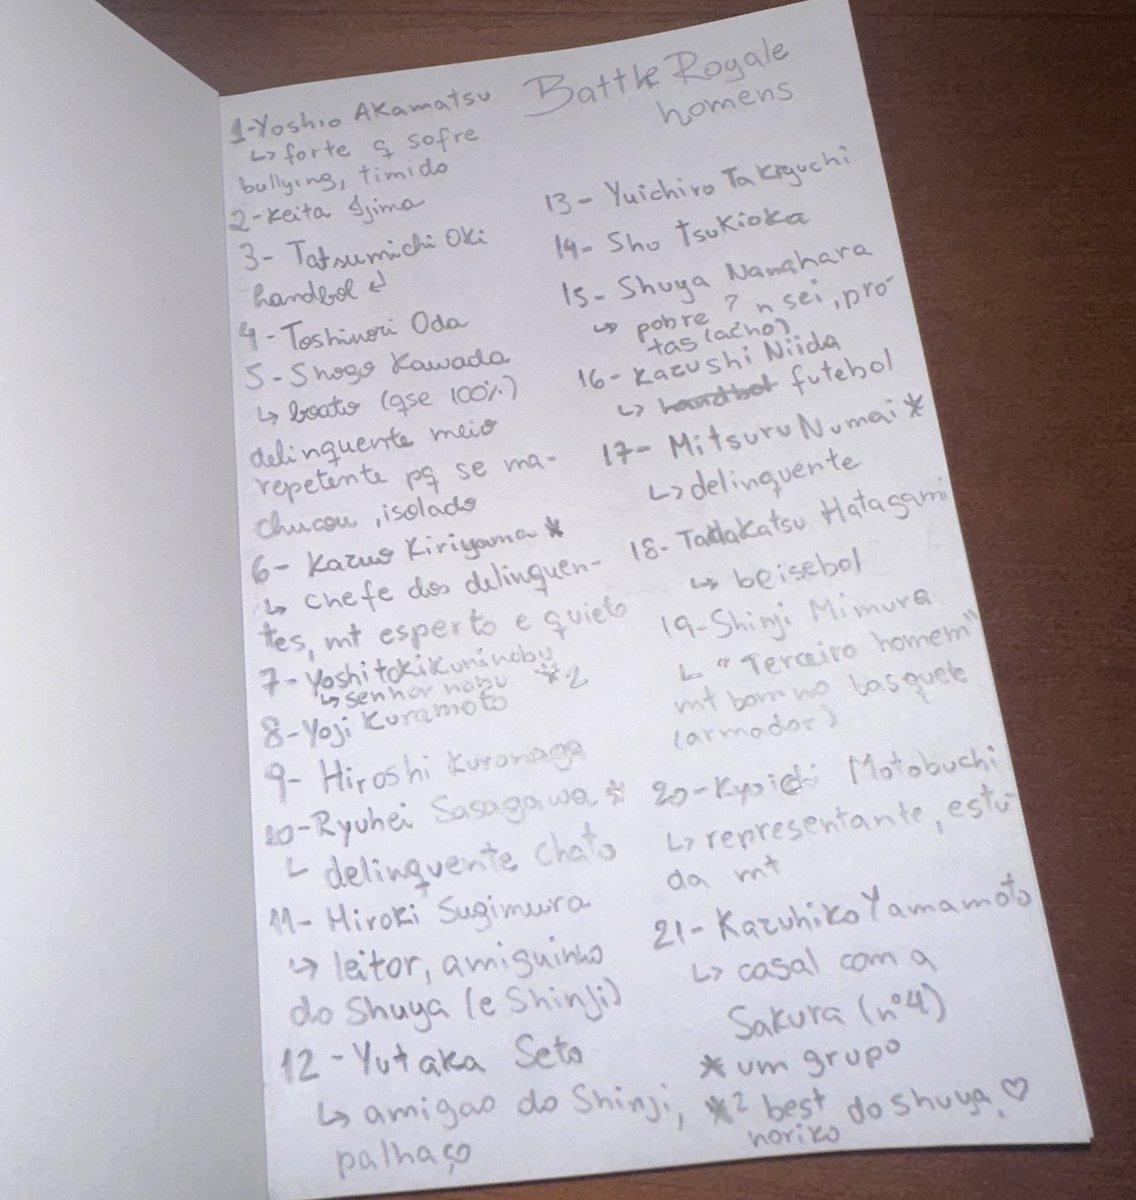 Battle Royale
homens
1-Yoshio Akamatsu
↳ forte q sofre
bullying, timido
2-Keita Iijima
3- Tatsumichi Oki
handbol ↲
4- Toshinori Oda
5- Shogo Kawada
↳ boato (qse 100%)
delinquente meio
repetente pq se ma-
chucou, isolado
6- Kazuo Kiriyama *
↳ chefe dos delinquen-
tes, mt esperto e quieto
7- Yoshitoki Kuninobu
↳ senhor nobu *2
8-Yoji Kuramoto
9- Hiroshi Kuronaga
10-Ryuhei Sasagawa *
↳ delinquente chato
11- Hiroki Sugimura
↳ leitor, amiguinho
do Shuya (e Shinji)
12 -Yutaka Seto
↳ amigao do Shinji,
palhaço
13- Yuichiro Takiguchi
14- Sho Tsukioka
15- Shuya Nanahara
↳ pobre? n sei, pro-
tas (acho)
16- Kazushi Niida
↳ handbol futebol
17- Mitsuru Numai *
↳ delinquente
18- Tadakatsu Hatagami
↳ beisebol
19-Shinji Mimura
↳ "Terceiro homem"
mt bom no basquete
(armador)
20-Kyoichi Motobuchi
↳ representante, estu-
da mt
21- Kazuhiko Yamamoto
↳ casal com a
Sakura (nº4)
* um grupo
*2 best do shuya, ♡
noriko